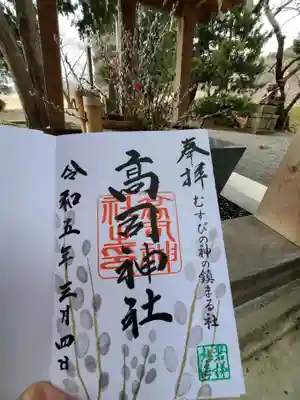 奉拝
むすびの神の鎮まる社
高司神社
令和五年三月四日